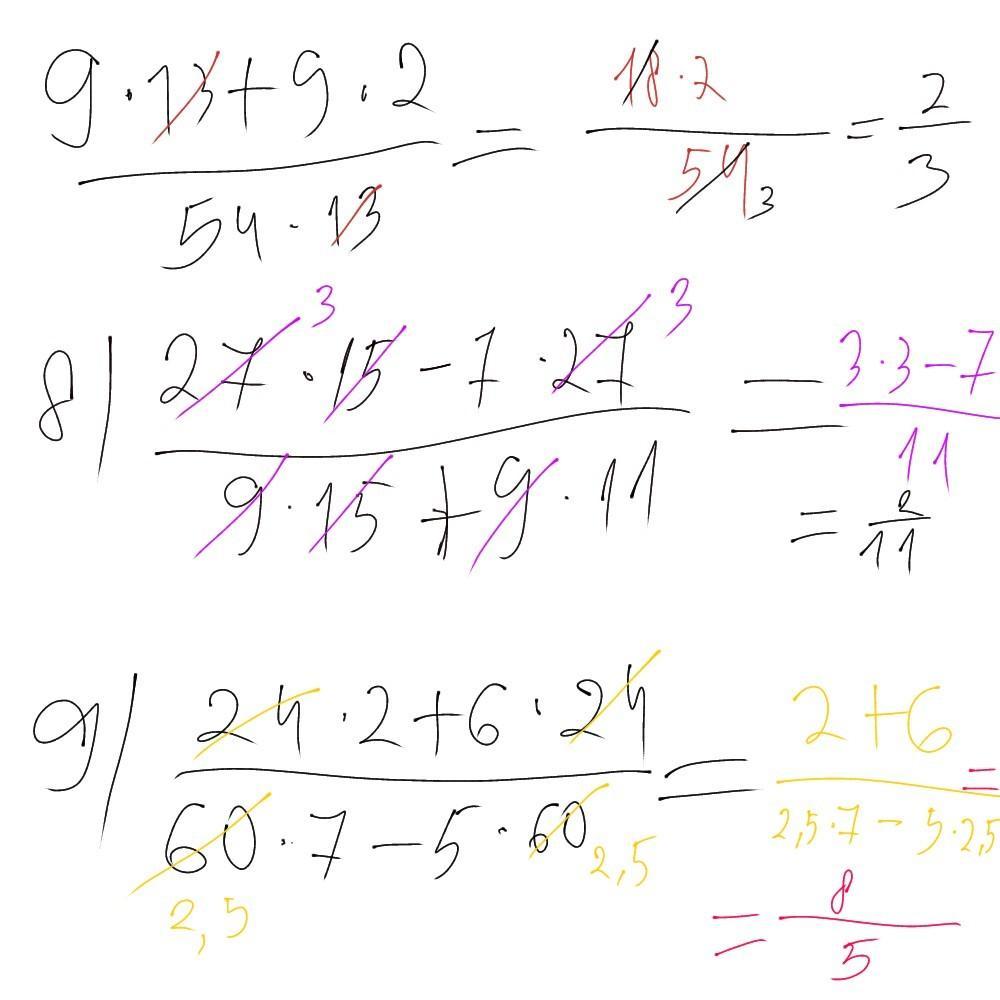 9 · 13 + 9 · 2 / 54 · 13 = 18 · 2 / 54 3 = 2 / 3
8) 27 3 · 15 - 7 · 27 3 / 9 · 15 + 9 · 11 = 3 · 3 - 7 / 11
= 2 / 11
9) 24 · 2 + 6 · 24 / 60 2,5 · 7 - 5 · 60 2,5 = 2 + 6 / 2,5 · 7 - 5 · 2,5 =
= 8 / 5